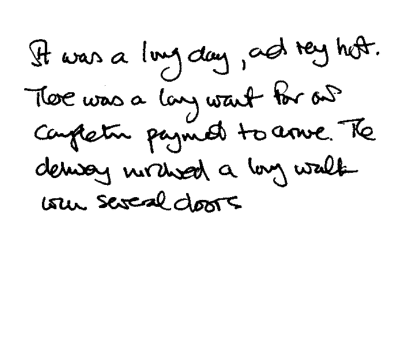 It was a long day, and very hot.
There was a long wait for our
completion payment to arrive. The
delivery involved a long walk
with several doors